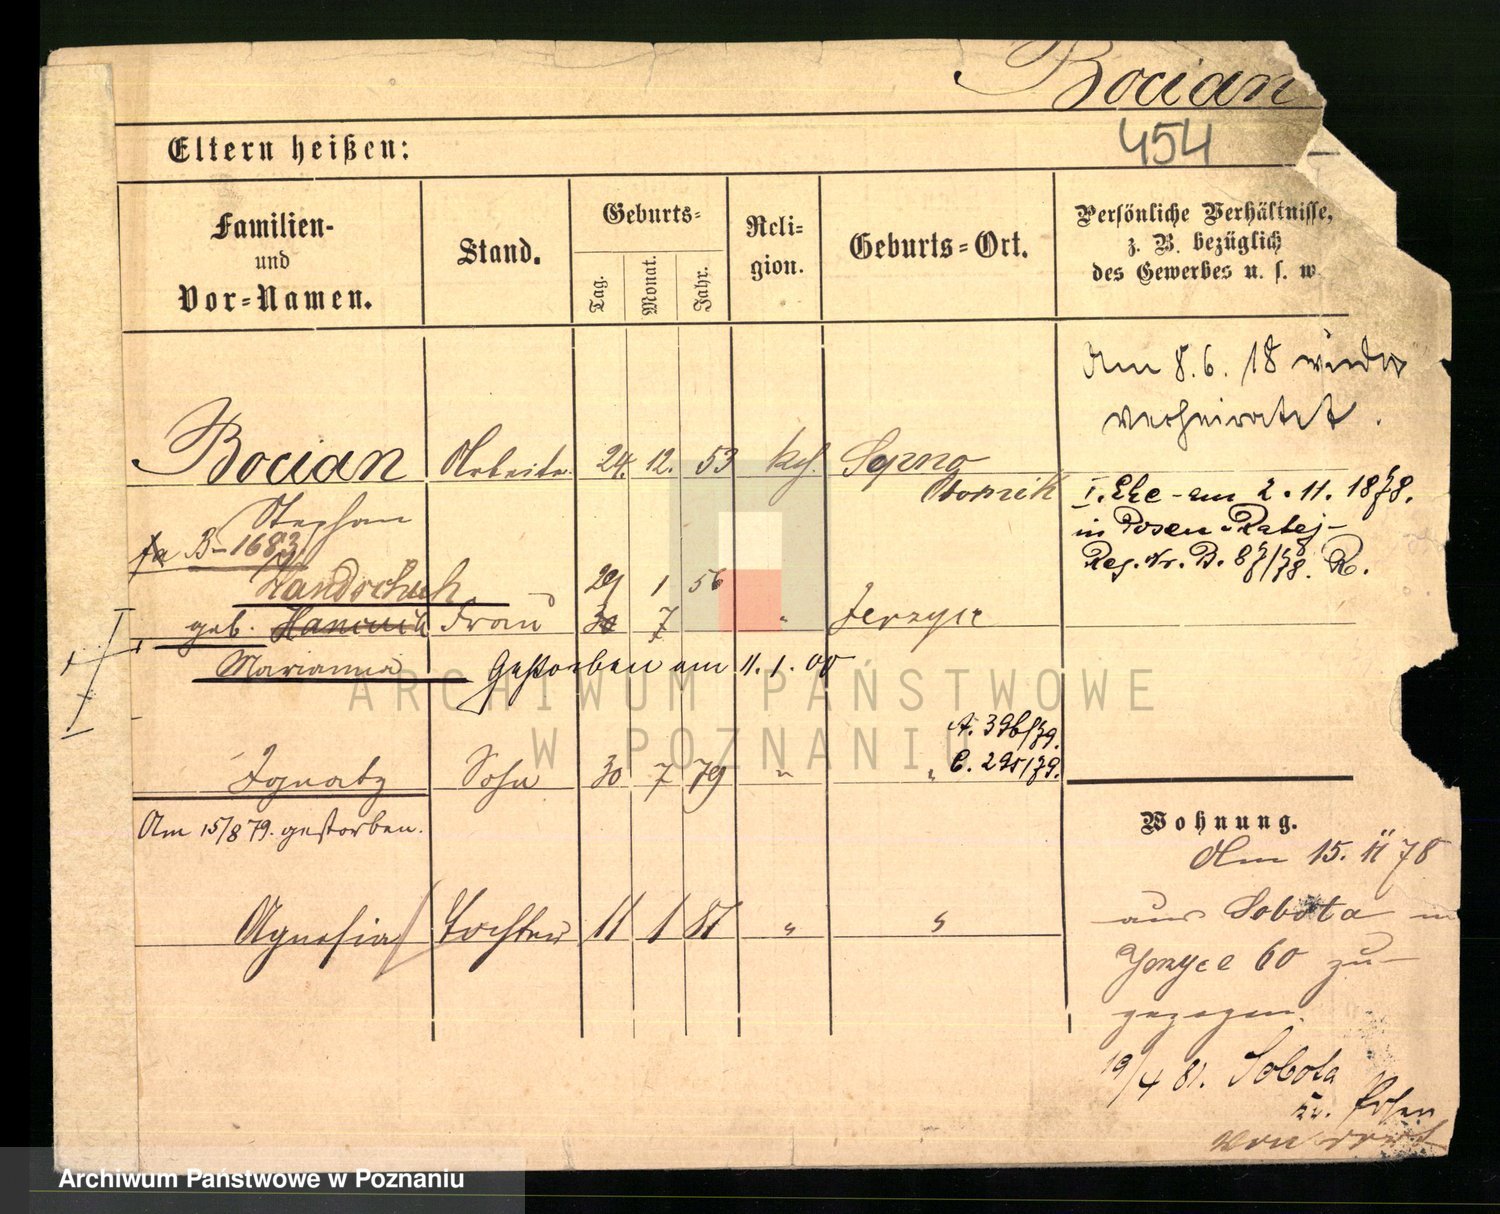 Bocian
454
Eltern heißen:
Familien-
und
Vor-Namen.
Stand.
Geburts-
Tag.
Monat.
Jahr.
Reli-
gion.
Geburts-Ort.
Persönliche Verhältnisse,
z. B. bezüglich
des Gewerbes u. s. w.
Am 8. 6. 18 wieder
verheiratet.
Bocian Arbeiter 24. 12. 53 kth.
Stephan
B-1683
I. Ehe - am 2. 11. 1878.
in Posen
Reg. Nr. B.
Handschuh 29 1 56
geb. Frau 30 7 " Jerzyce
Marianna Gestorben am 11. 1. 00
A. 396/79.
Ignatz Sohn 30 7 79 " " C. 295/79.
Am 15/8 79. gestorben.
Agnesia Tochter 11 1 81 " "
Wohnung.
Am 15. 11 78
aus Sobota in
Jerzyce 60 zu-
gezogen.
19/4 81. Sobota
Kr. Posen
ARCHIWUM PAŃSTWOWE
W POZNANIU
Archiwum Państwowe w Poznaniu